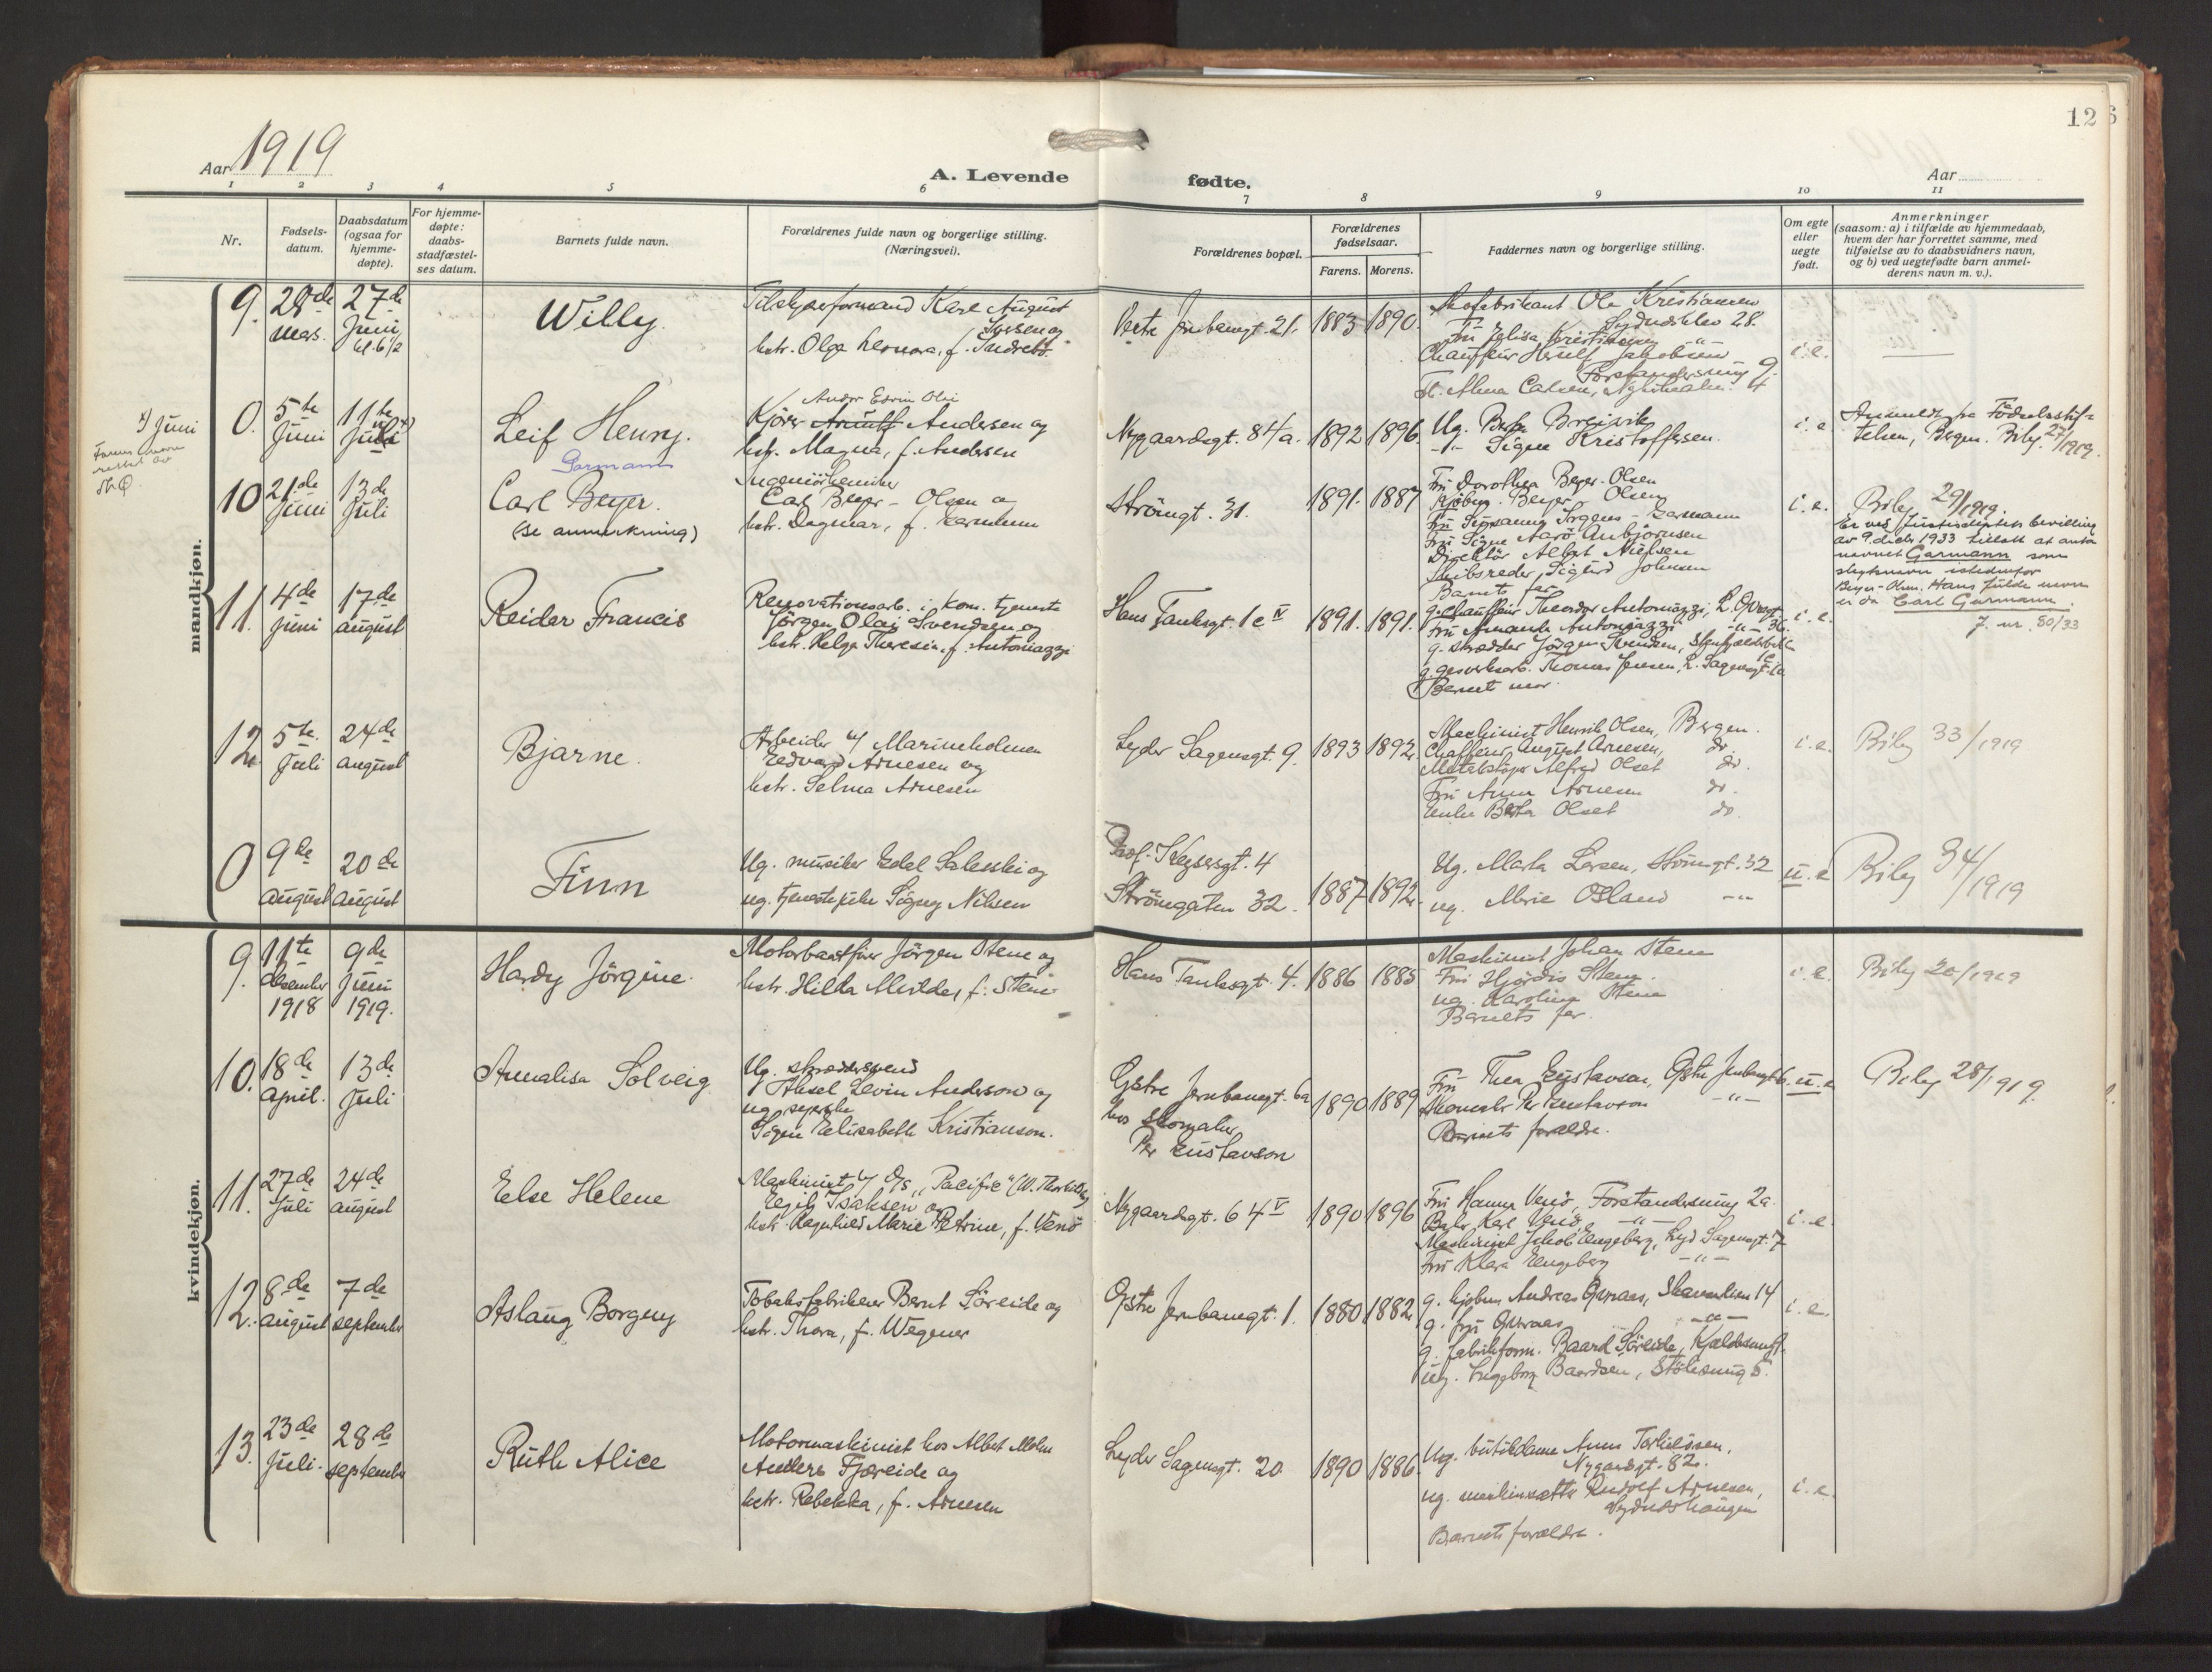 12
Aar 1919
A. Levende
fødte.
Aar
1 2 3 4 5 6 7 8 9 10 11
Nr.
Fødsels-
datum.
Daabsdatum
(ogsaa for
hjemme-
døpte).
For hjemme-
døpte:
daabs-
stadfæstel-
ses datum.
Barnets fulde navn.
Forældrenes fulde navn og borgerlige stilling.
(Næringsvei).
Forældrenes bopæl.
Forældrenes
fødselsaar.
Farens. Morens.
Faddernes navn og borgerlige stilling.
Om egte
eller
uegte
født.
Anmerkninger
(saasom: a) i tilfælde av hjemmedaab,
hvem der har forrettet samme, med
tilføielse av to daabsvidners navn,
og b) ved uegtefødte barn anmel-
derens navn m. v.).
mandkjøn.
9. 28de mars. 27de Juni kl. 6 1/2
Willy.
Karl August
hstr. Olga
Vestre Jernbanegt. 21.
1883 1890.
Ole Kristiansen
Sydnesklev 28.
Chauffeur Jakobsen
Forstandersmug 9.
i. e.
x) Juni
0. 5te Juni 11te Juli x)
Leif Henry.
Andor Edvin Olai
Kjører Andersen og
hstr. Magna, f. Andersen
Nygaardsgt. 84a.
1892 1896.
Ug. Breivik
-"- Signe Kristoffersen.
i. e
Anmeldt fra Fødselsstif-
telsen, Bergen. Bilag 27/1919.
10 21de Juni 13de Juli
Garmann
Carl Beyer.
(se anmerkning)
Ingeniörkemiker
Carl Beyer-Olsen og
hstr. Dagmar, f. Garmann
Strömgt. 31.
1891. 1887
Fru Dorothea Beyer-Olsen
Kjöbm. Beyer-Olsen
Fru Signe Aarö Anbjörnsen
Direktör Albert Nielsen
Skibsreder Sigurd Johnsen
Barnets far
i. e.
Bilag 29/1919.
Er ved Justisdeptets bevilling
av 9. decbr 1933 tillatt at anta
navnet Garmann som
slegtsnavn istedenfor
Beyer-Olsen. Hans fulde navn
er da Carl Garmann.
J. nr. 80/33
11. 4de Juni 17de august
Reidar Francis
Renovationsarb. i kom. tjeneste
Jörgen Olai Svendsen og
hstr. Helga Theresia, f. Antoniazzi
Hans Tanksgt. 1c IV
1891. 1891.
g. chauffeur Theodor Antoniazzi,
Fru Amanda Antoniazzi -"-
g. skrædder Jörgen Svendsen,
g. gasverksarb. Thomas Jensen, L. Sagensgt.
Barnets mor.
i. e.
12 5te Juli 24de august
Bjarne.
Arbeider v/ Marineholmen
Edvard Arnesen og
hstr. Selma Arnesen
Lyder Sagensgt. 9.
1893 1892.
Maskinist Henrik Olsen, Bergen.
Chaffeur August Arnesen, do.
Metalstöper Alfred Olset do.
Fru Anna Arnesen do.
Enke Berta Olset do
i. e.
Bilag 33/1919
0 9de august 20de august
Finn
Ug. musiker Edel Saleski og
ug. tjenestepike Signy Nilsen
Prof. Keysersgt. 4
Strömgaten 32.
1887 1892.
Ug. Marta Larsen, Strömgt. 32
ug. Marie Osland -"-
u. e
Bilag 34/1919
kvindekjøn.
9. 11te desember 1918 9de Juni 1919.
Hardy Jörgine.
Motorbaatförer Jörgen Stene og
hstr. Hilda Matilde, f. Stene
Hans Tanksgt. 4.
1886 1885
Maskinist Johan Stene
Fru Hjördis Stene.
ug. Karoline Stene
Barnets far.
i. e.
Bilag 20/1919
10. 18de April. 13de Juli
Annalisa Solveig
Ug. skræddersvend
Aksel Levin Anderson og
ug. syerske
Signe Elisabeth Kristianson.
Östre Jernbanegt. 6a
hos skomaker
Per Gustavson
1890 1889
Fru Thea Gustavson, Östre Jernbanegt. 6.
Skomaker Per Gustavson -"-
Barnets forældre.
u. e
Bilag 28/1919.
11. 27de Juli 24de august
Else Helene
Maskinist v/ D/S „Pacific"
Egil Isaksen og
hstr. Ragnhild Marie Petrine, f. Venö
Nygaardsgt. 64 V
1890 1896
Fru Hanna Venö, Forstandersmug 2a.
Karl Venö, -"-
Maskinist Jakob Engeberg, Lyd Sagensgt. 7
Fru Klara Engeberg -"-
i. e.
12. 8de august 7de september
Aslaug Borgny
Tobaksfabrikarb. Bernt Söreide og
hstr. Thora, f. Wegener
Östre Jernbanegt. 1.
1880 1882.
g. kjöbm. Andreas Qvraas, Skanselien 14
g. fru Qvraas -"-
g. fabrikform. Baard Söreide, Kjeldesmug
ug. Ingeborg Baardsen, Stölesmug 5.
i. e.
13. 23de Juli. 28de september
Ruth Alice
Motormaskinist hos Albert Mohn
Anders Fjæreide og
hstr. Rebekka, f. Arnesen
Lyder Sagensgt. 20
1890 1886.
Ug. butikdame Anna Torkildsen,
Nygaardsgt. 82.
ug. maskinsætter Rudolf Arnesen,
Sydneshaugen
Barnets forældre.
i. e.